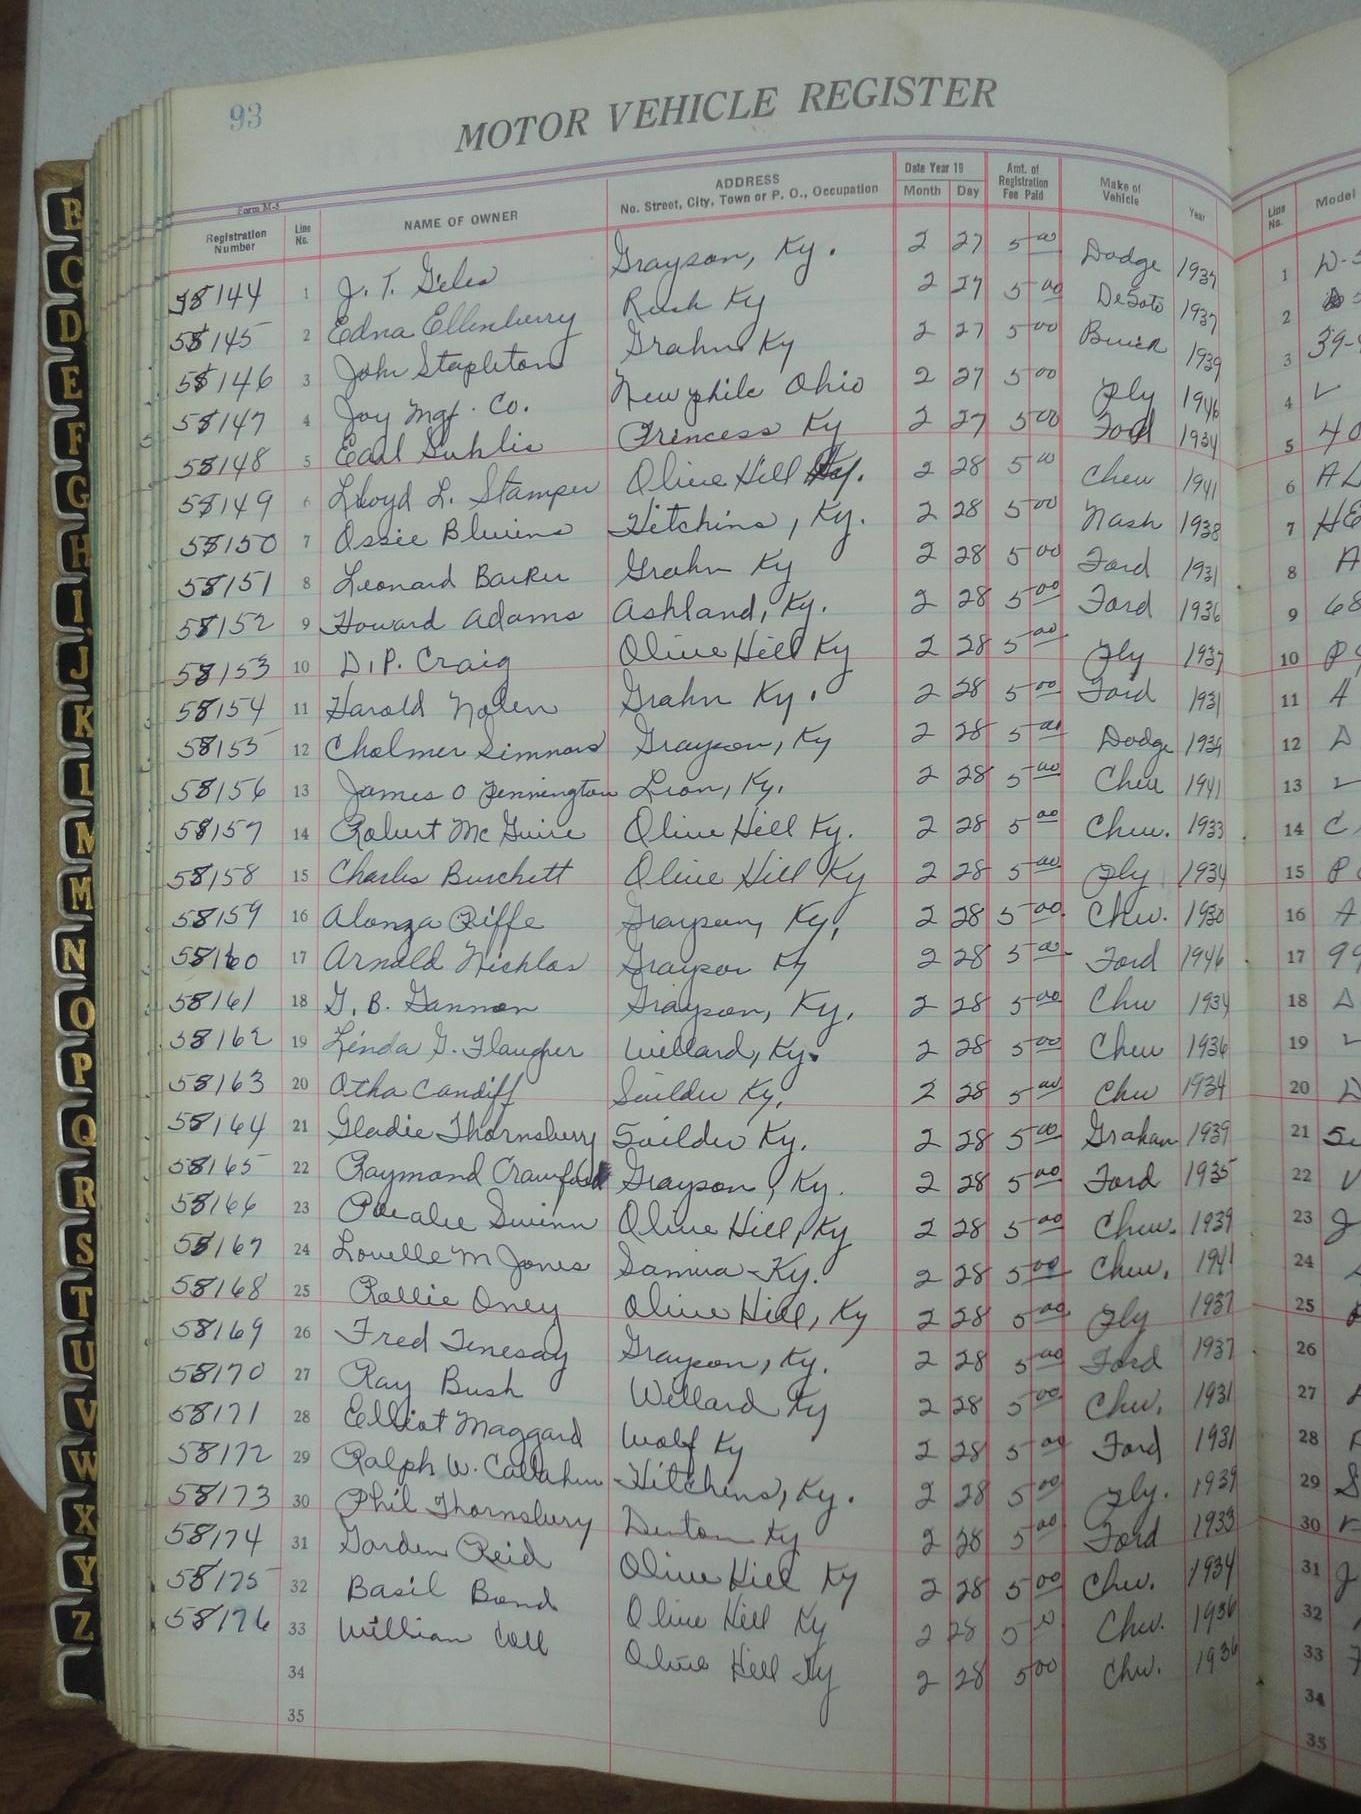 93
MOTOR VEHICLE REGISTER
Form M-5
Registration Number Line No. NAME OF OWNER ADDRESS No. Street, City, Town or P. O., Occupation Date Year 19 Month Day Amt. of Registration Fee Paid Make of Vehicle Year Line No. Model
58144 1 J. T. Giles Grayson, Ky. 2 27 5 00 Dodge 1937 1
58145 2 Edna Ellenberry Rush Ky 2 27 5 00 DeSoto 1937 2
58146 3 John Stapleton Grahn Ky 2 27 5 00 Buick 1939 3
58147 4 Joy Mgf. Co. Newphile Ohio 2 27 5 00 Ply 1946 4
58148 5 Earl Princess Ky 2 27 5 00 Ford 1934 5 40
58149 6 Lloyd L. Stamper Olive Hill Ky. 2 28 5 00 Chev 1941 6
58150 7 Ossie Blevins Hitchins, Ky. 2 28 5 00 Nash 1938 7
58151 8 Leonard Barker Grahn Ky 2 28 5 00 Ford 1931 8 A
58152 9 Howard Adams Ashland, Ky. 2 28 5 00 Ford 1936 9 68
58153 10 D.P. Craig Olive Hill Ky 2 28 5 00 Ply 1937 10
58154 11 Harold Nolen Grahn Ky. 2 28 5 00 Ford 1931 11 A
58155 12 Cholmer Simmons Grayson, Ky 2 28 5 00 Dodge 12 D
58156 13 James O Pennington Leon, Ky. 2 28 5 00 Chev 1941 13
58157 14 Robert McGuire Olive Hill Ky. 2 28 5 00 Chev. 1933 14 C
58158 15 Charles Burchett Olive Hill Ky 2 28 5 00 Ply 1934 15 P
58159 16 Alonza Riffe Grayson, Ky. 2 28 5 00 Chev. 1930 16 A
58160 17 Arnold Nichlas Grayson Ky 2 28 5 00 Ford 1946 17 99
58161 18 G. B. Gannon Grayson, Ky. 2 28 5 00 Chev 1934 18 D
58162 19 Linda G. Flaugher Willard, Ky. 2 28 5 00 Chev 1936 19
58163 20 Otha Cundiff Soilder Ky. 2 28 5 00 Chev 1934 20 D
58164 21 Gladie Thornsberry Soilder Ky. 2 28 5 00 Graham 1939 21
58165 22 Raymond Crawford Grayson, Ky. 2 28 5 00 Ford 1935 22 V
58166 23 Olive Hill, Ky 2 28 5 00 Chev. 1939 23 J
58167 24 Lovelle M Jones Samira Ky. 2 28 5 00 Chev. 1941 24
58168 25 Rollie Oney Olive Hill, Ky 2 28 5 00 Ply 1937 25
58169 26 Fred Grayson, Ky. 2 28 5 00 Ford 1937 26
58170 27 Ray Bush Willard Ky 2 28 5 00 Chev. 1931 27
58171 28 Elliot Maggard Wolf Ky 2 28 5 00 Ford 1931 28
58172 29 Ralph W. Callahan Hitchens, Ky. 2 28 5 00 Ply. 1939 29 S
58173 30 Phil Thornsbury Denton Ky 2 28 5 00 Ford 1933 30
58174 31 Garden Reid Olive Hill Ky 2 28 5 00 Chev. 1934 31 J
58175 32 Basil Bond Olive Hill Ky 2 28 5 00 Chev. 1936 32
58176 33 William Coll Olive Hill Ky 2 28 5 00 Chev. 1936 33
34 34
35 35
B
C
D
E
F
G
H
I
J
K
L
M
M
N
O
P
Q
R
S
T
U
V
W
X
Y
Z